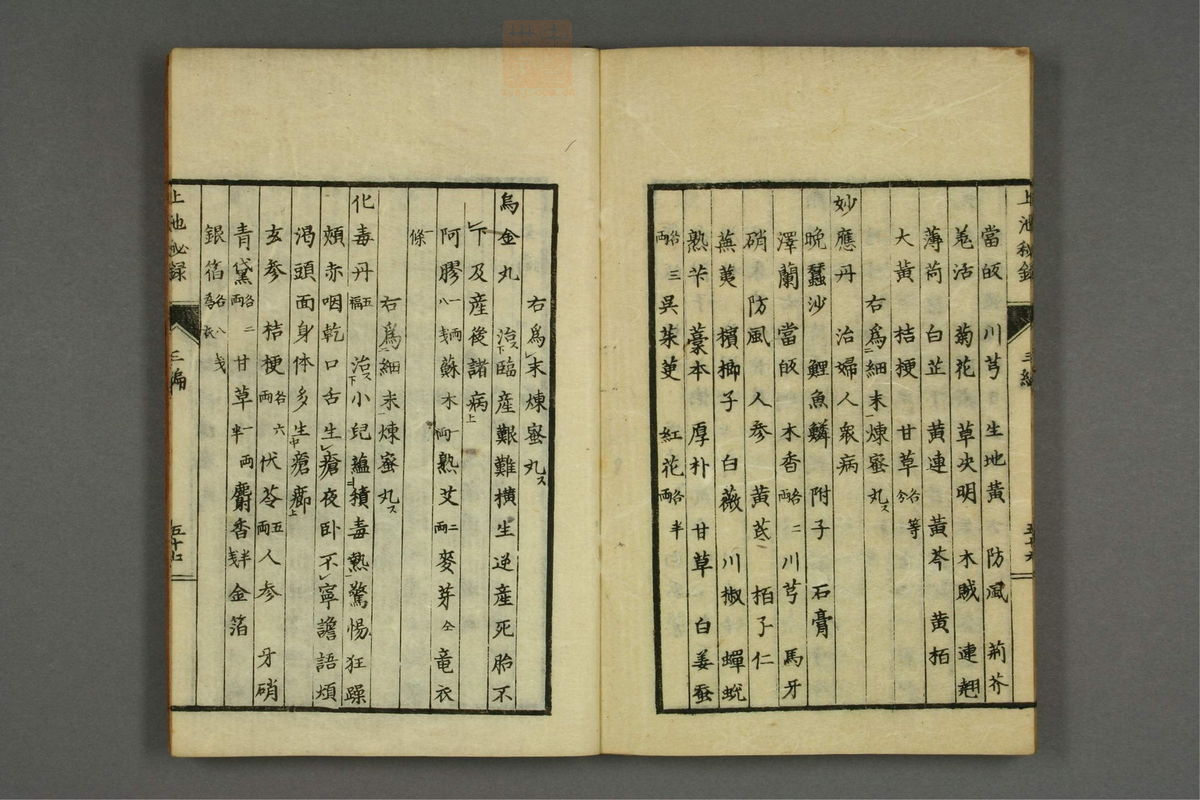 上池秘録 三編 五十六
當皈 川芎 生地黄 防風 荊芥
羗活 菊花 草决明 木賊 連翹
薄荷 白芷 黄連 黄芩 黄栢
大黄 桔梗 甘草各等分
右爲細末煉蜜丸ス
妙應丹 治婦人衆病
晩蠶沙 鯉魚鱗 附子 石膏
澤蘭 當皈 木香各二両 川芎 馬牙
硝 防風 人参 黄芪 栢子仁
蕪荑 檳榔子 白薇 川椒 蟬蛻
熟芐 藁本 厚朴 甘草 白姜蚕
各三両 呉茱萸 紅花各半両
右爲末煉蜜丸ス
烏金丸 治ス臨産艱難横生逆産死胎不
下及産後諸病
阿膠一両八戔 蘇木一両 熟艾二両 麥芽仝 竜衣
一條
右爲細末煉蜜丸ス
化毒丹五福 治ス小兒蘊積毒熱驚惕狂躁
頰赤咽乾口舌生瘡夜卧不寧譫語煩
渇頭面身体多生瘡癤
玄参 桔梗各六両 伏苓五両 人参 牙硝
青黛各二両 甘草一両半 麝香半戔 金箔
銀箔各八戔爲衣
上池秘録 三編 五十七